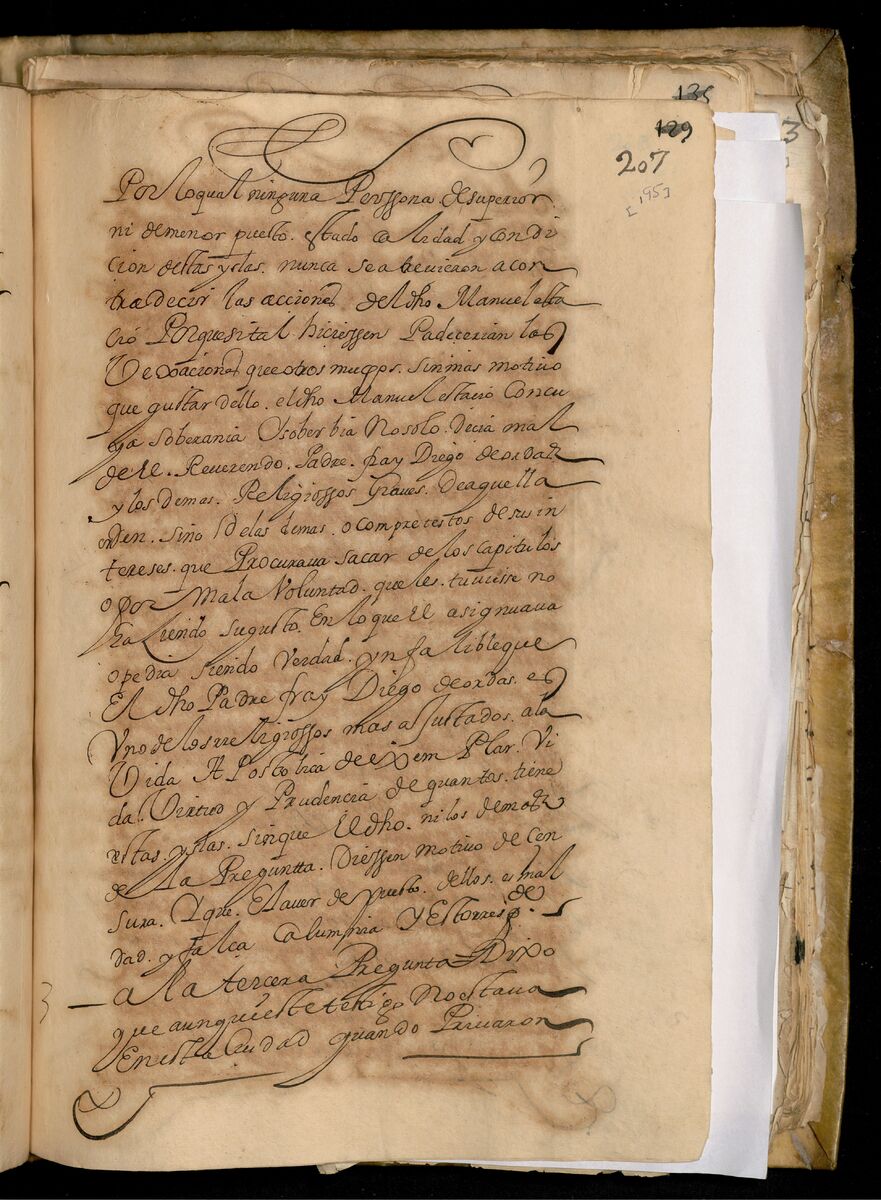 135
129
207
[195]
Por lo qual ninguna Perssona de superior.
ni de menor puesto. estado calidad y condi
cion destas yslas. nunca se atrevieron a con
tradecir las acciones del dho Manuel esta
cio Porque si tal hiciessen Padecerian las
Vexaciones que otros muchos. sin mas motivo
que gustar dello. el dho Manuel estacio Con cu
ya soberania O soberbia No solo. decia mal
de el. Reverendo. Padre. fray Diego de ordas
y los demas. Religiossos Graves. de aquella
orden. sino de las demas. o con pretestos de sus in
tereses. que Procurava sacar de los capitulos
o por mala Voluntad. que les. tuviese no
haciendo su gusto. En lo que el asignuava
o pedia siendo verdad. ynfalible que
El dho Padre fray Diego de ordas. es
Uno de los religiossos mas ajustados. a la
Vida Apostolica de exemPlar. Vi
da. Virtud y Prudencia de quantos. tiene
estas. yslas. sin que el dho. ni los demas
de la Pregunta. Diessen motivo de cen
sura. Y que. El aver depuesto. dellos. es mal
dad. y falça calumnia Y Esto resp.de
3 a la tercera Pregunta Dixo
que aunque este testigo No estava
En esta Ciudad quando Privaron